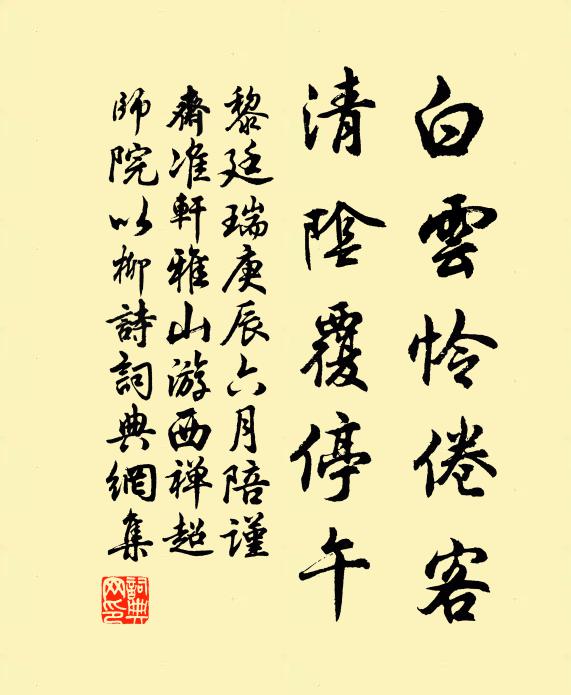 白雲怜倦客
清陰覆停午
黎廷瑞庚辰六月陪谨
齋准軒雅山游西禅超
師院以柳詩詞典網集
詞典网印